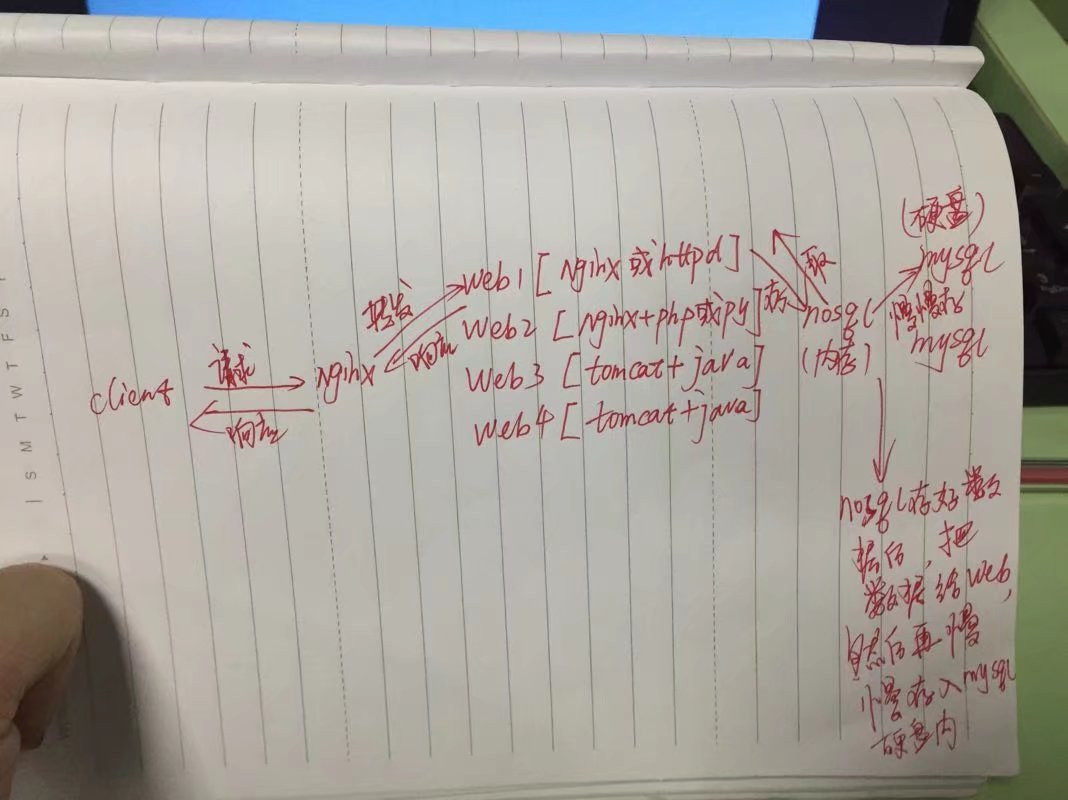 client
请求
响应
nginx
转发
响应
web1 [ nginx 或 httpd ]
web2 [ nginx+php或py ]
web3 [ tomcat + java ]
web4 [ tomcat + java ]
存
取
nosql
(内存)
(硬盘)
mysql
慢慢存
mysql
nosql存好数
据后，把
数据给web,
然后再慢
慢存入mysql
硬盘内
S M T W T F S